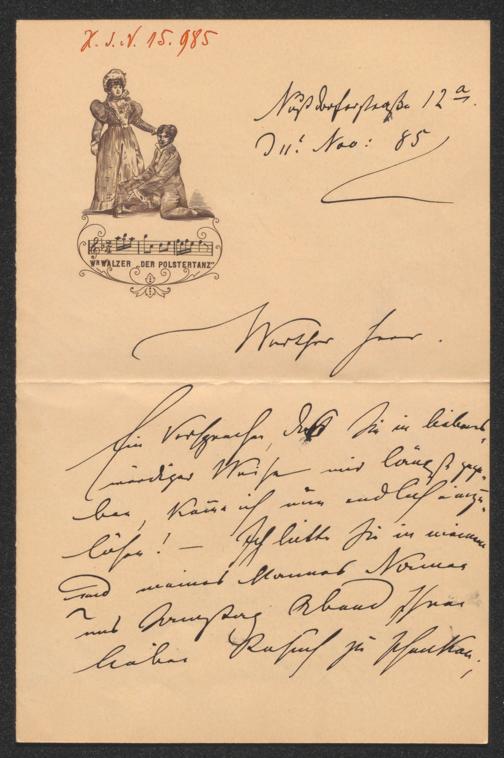 H. I. N. 15.985
Nußdorferstraße 12 a.
Nov: 85
Wr WALZER „DER POLSTERTANZ“
Werther Herr.
Ein Versprechen, daß Sie in liebens-
würdiger Weise mir längst gege-
ben, kann ich nun endlich einzu-
lösen! — Ich bitte Sie in meinem
und meines Mannes Namen
uns Samstag Abend Ihren
lieben Besuch zu schenken,